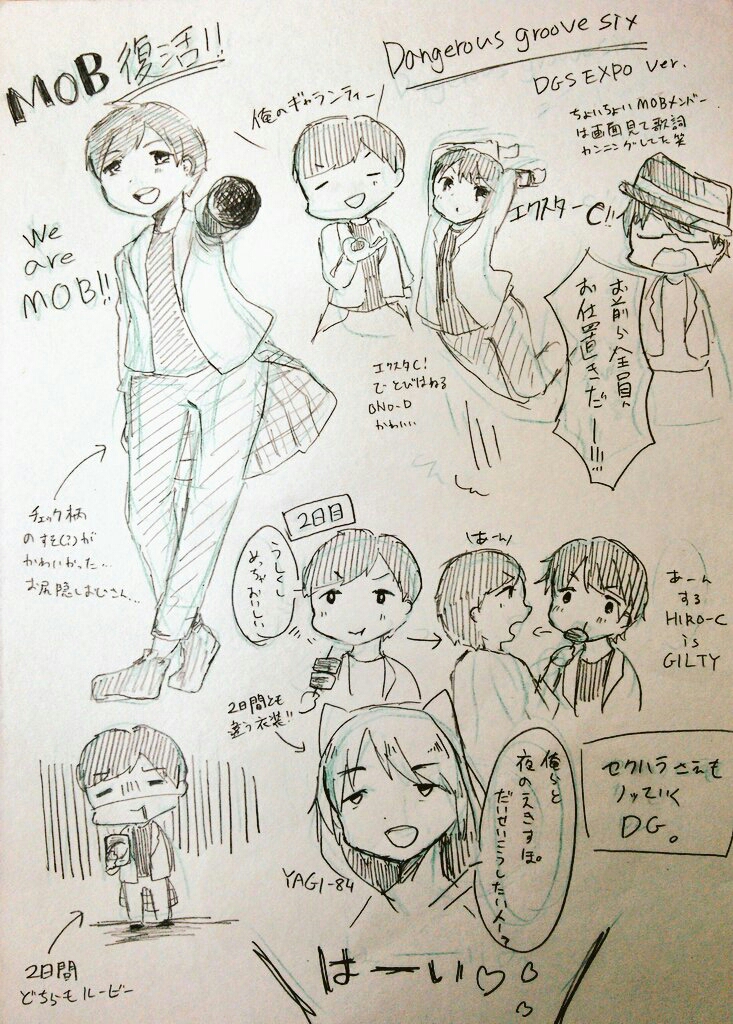 MOB 復活!!
Dangerous groove six
DGS EXPO ver.
俺のギャランティー
ちょいちょいMOBメンバー
は画面見て歌詞
カンニングしてた笑
We
are
MOB!!
エクスターC!!
お前ら全員、
お仕置きだー!!!
エクスタC!
でとびはねる
ONO-D
かわいい
チェック柄
のすそ(?)が
かわいかった…
お尻隠しおじさん…
2日目
うしくし
めっちゃおいしい
はーん
あーん
する
HIRO-C
is
GILTY
2日間とも
違う衣装!!
セクハラさえも
ノッていく
DG。
俺らと
夜のえきすぽ。
だいせいこうしたい人ー?
YAGI-84
はーい♡♡♡
2日間
どちらもルービー